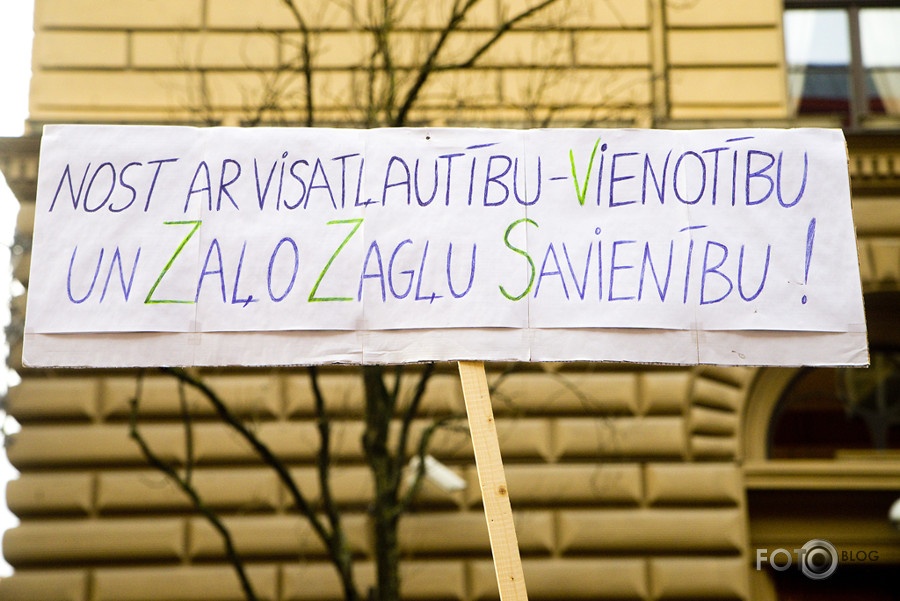 NOST AR VISATĻAUTĪBU-VIENOTĪBU
UN ZAĻO ZAGĻU SAVIENĪBU!
FOTO BLOG